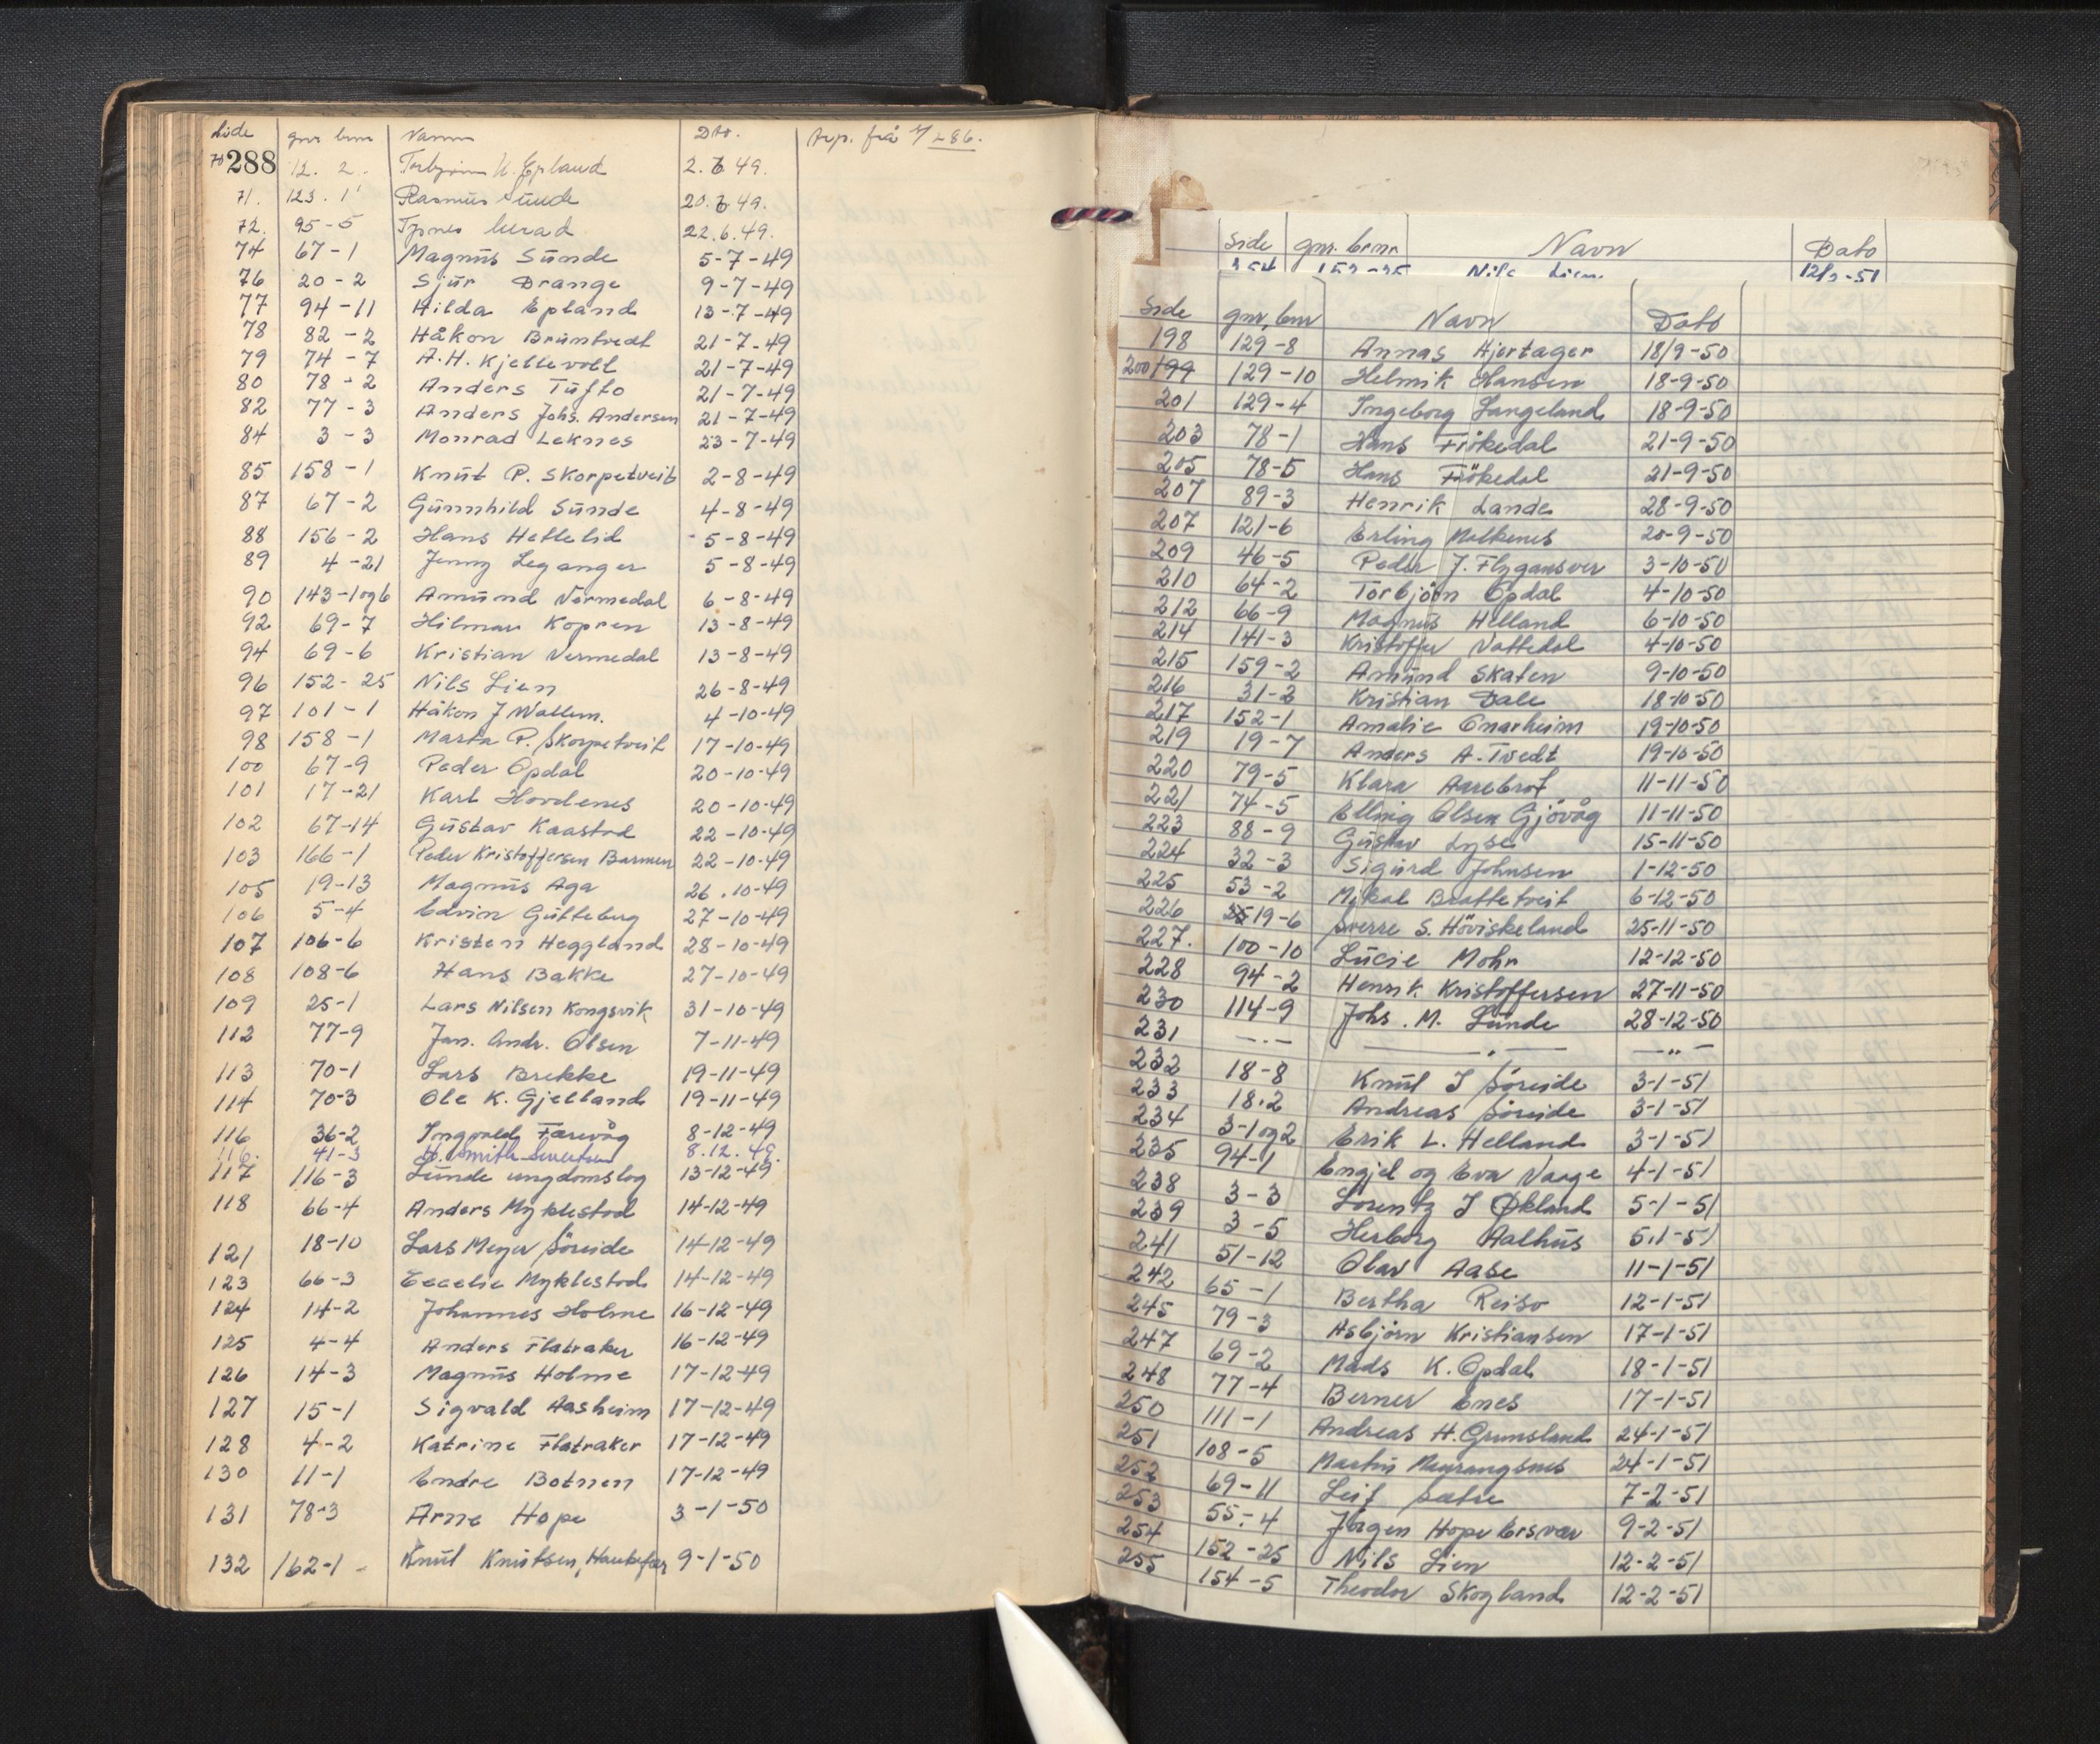 Side gnr bnr Navn Dato. Avp. frå s/ 286.
70 288 12. 2. Torbjørn N. Epland 2.6 49.
71. 123. 1 Rasmus Sunde 20.6 49.
72. 95-5 22.6.49.
74 67-1 Magnus Sunde 5-7-49
76 20-2 Sjur Drange 9-7-49
77 94-11 Hilda Epland 13-7-49
78 82-2 Håkon Bruntvedt 21-7-49
79 74-7 A.H. Kjellevoll 21-7-49
80 78-2 Anders Tufto 21-7-49
82 77-3 Anders Johs. Andersen 21-7-49
84 3-3 Monrad Leknes 23-7-49
85 158-1 Knut P. Skorpetveit 2-8-49
87 67-2 Gunnhild Sunde 4-8-49
88 156-2 Hans Hettelid 5-8-49
89 4-21 Jenny Leganger 5-8-49
90 143-1og6 Amund Vermedal 6-8-49
92 69-7 Hilmar Kopren 13-8-49
94 69-6 Kristian Vermedal 13-8-49
96 152-25 Nils Lien 26-8-49
97 101-1 Håkon J Wallem. 4-10-49
98 158-1 Marta P. Skorpetveit 17-10-49
100 67-9 Peder Opdal 20-10-49
101 17-21 Karl Hovdenes 20-10-49
102 67-14 Gustav Kaastad 22-10-49
103 166-1 Peder Kristoffersen Barmen 22-10-49
105 19-13 Magnus Aga 26.10-49
106 5-4 Edvin Gutteberg 27-10-49
107 106-6 Kristen Heggland 28-10-49
108 108-6 Hans Bakke 27-10-49
109 25-1 Lars Nilsen Kongsvik 31-10-49
112 77-9 Jan. Andr. Olsen 7-11-49
113 70-1 Lars Brekke 19-11-49
114 70-3 Ole K. Gjelland 19-11-49
116 36-2 Ingvald Færevåg 8-12-49
116. 41-3 H. Smith Sivertsen 8.12.49.
117 116-3 Lunde ungdomslog 13-12-49
118 66-4 Anders Myklestad 14-12-49
121 18-10 Lars Meyer Søreide 14-12-49
123 66-3 Cecelie Myklestad 14-12-49
124 14-2 Johannes Holme 16-12-49
125 4-4 Anders Flatraker 16-12-49
126 14-3 Magnus Holme 17-12-49
127 15-1 Sigvald Aasheim 17-12-49
128 4-2 Katrine Flatraker 17-12-49
130 11-1 Endre Botnen 17-12-49
131 78-3 Arne Hope 3-1-50
132 162-1 Knut Knutsen, Haukefær 9-1-50
Side gnr. brnr Navn Dato
254 152-25 Nils Lien 12/2-51
Side gnr, bnr Navn Dato
198 129-8 Annas Hjertager 18/9-50
200/199 129-10 Helmik Hansen 18-9-50
201 129-4 Ingeborg Langeland 18-9-50
203 78-1 Hans Fiökedal 21-9-50
205 78-5 Hans Fiökedal 21-9-50
207 89-3 Henrik Lande 28-9-50
207 121-6 Erling Melkenes 20-9-50
209 46-5 Peder J. Flygansvær 3-10-50
210 64-2 Torbjörn Opdal 4-10-50
212 66-9 Magnus Helland 6-10-50
214 141-3 Kristoffer Nattedal 4-10-50
215 159-2 Amund Skaten 9-10-50
216 31-2 Kristian Dale 18-10-50
217 152-1 Amalie Onarheim 19-10-50
219 19-7 Anders A. Tvedt 19-10-50
220 79-5 Klara Aarebrot 11-11-50
221 74-5 Elling Olsen Gjövåg 11-11-50
223 88-9 Gustav Lyse 15-11-50
224 32-3 Sigurd Johnsen 1-12-50
225 53-2 Mikal Brattetveit 6-12-50
226 19-6 Sverre S. Höviskeland 25-11-50
227. 100-10 Lucie Mohr 12-12-50
228 94-2 Henrik Kristoffersen 27-11-50
230 114-9 Johs. M. Lunde 28-12-50
231 —.— —.— —"—
232 18-8 Knut J Söreide 3-1-51
233 18.2 Andreas Söreide 3-1-51
234 3-1og2 Erik L. Helland 3-1-51
235 94-1 Engjel og Eva Vaage 4-1-51
238 3-3 Lorentz J Økland 5-1-51
239 3-5 Herborg Aalhus 5.1-51
241 51-12 Olav Aase 11-1-51
242 65-1 Bertha Reiso 12-1-51
245 79-3 Asbjörn Kristiansen 17-1-51
247 69-2 Mads K. Opdal 18-1-51
248 77-4 Berner Enes 17-1-51
250 111-1 Andreas H. Grunsland 24-1-51
251 108-5 Martin Maurangsnes 24-1-51
252 69-11 Leif Sætre 7-2-51
253 55-4 Jörgen Hope Ersvær 9-2-51
254 152-25 Nils Lien 12-2-51
255 154-5 Theodor Skogland 12-2-51